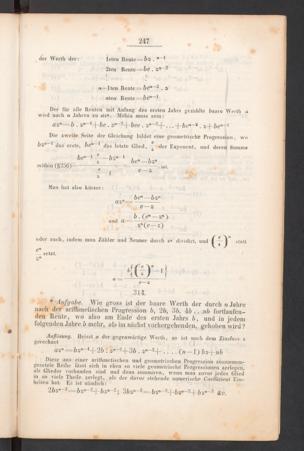 247
der Werth der: 1sten Rente = bz . zⁿ⁻¹
2ten Rente = be . zⁿ⁻²
n—1ten Rente = beⁿ⁻² . z
nten Rente = beⁿ⁻¹.
Der für alle Renten mit Anfang des ersten Jahrs gezahlte baare Werth a
wird nach n Jahren zu azⁿ. Mithin muss sein:
Die zweite Seite der Gleichung bildet eine geometrische Progression, wo
bzⁿ⁻¹ das erste, beⁿ⁻¹ das letzte Glied, e/z der Exponent, und deren Summe
Man hat also kürzer:
azⁿ = (beⁿ—bzⁿ)/(e—z)
und a = b . (eⁿ—zⁿ)/zⁿ(e—z)
oder auch, indem man Zähler und Nenner durch zⁿ dividirt, und (e/z)ⁿ statt
eⁿ/zⁿ setzt.
314.
* Aufgabe. Wie gross ist der baare Werth der durch n Jahre
nach der arithmetischen Progression b, 2b, 3b, 4b .. nb fortlaufen-
den Rente, wo also am Ende des ersten Jahrs b, und in jedem
folgenden Jahre b mehr, als im nächst vorhergehenden, gehoben wird?
Auflösung. Heisst a der gegenwärtige Werth, so ist nach dem Zinsfuss z
gerechnet
azⁿ = bzⁿ⁻¹+2b . zⁿ⁻²+3b . zⁿ⁻³+ .... (n—1) bz+nb
Diese aus einer arithmetischen und geometrischen Progression zusammen-
gesetzte Reihe lässt sich in eben so viele geometrische Progressionen zerlegen,
als Glieder vorhanden sind und dann summiren, wenn man zuvor jedes Glied
in so viele Theile zerlegt, als der davor stehende numerische Coefficient Ein-
heiten hat. Es ist nämlich:
2bzⁿ⁻² = bzⁿ⁻²+bzⁿ⁻²; 3bzⁿ⁻³ = bzⁿ⁻³+bzⁿ⁻³+bzⁿ⁻³ &c.